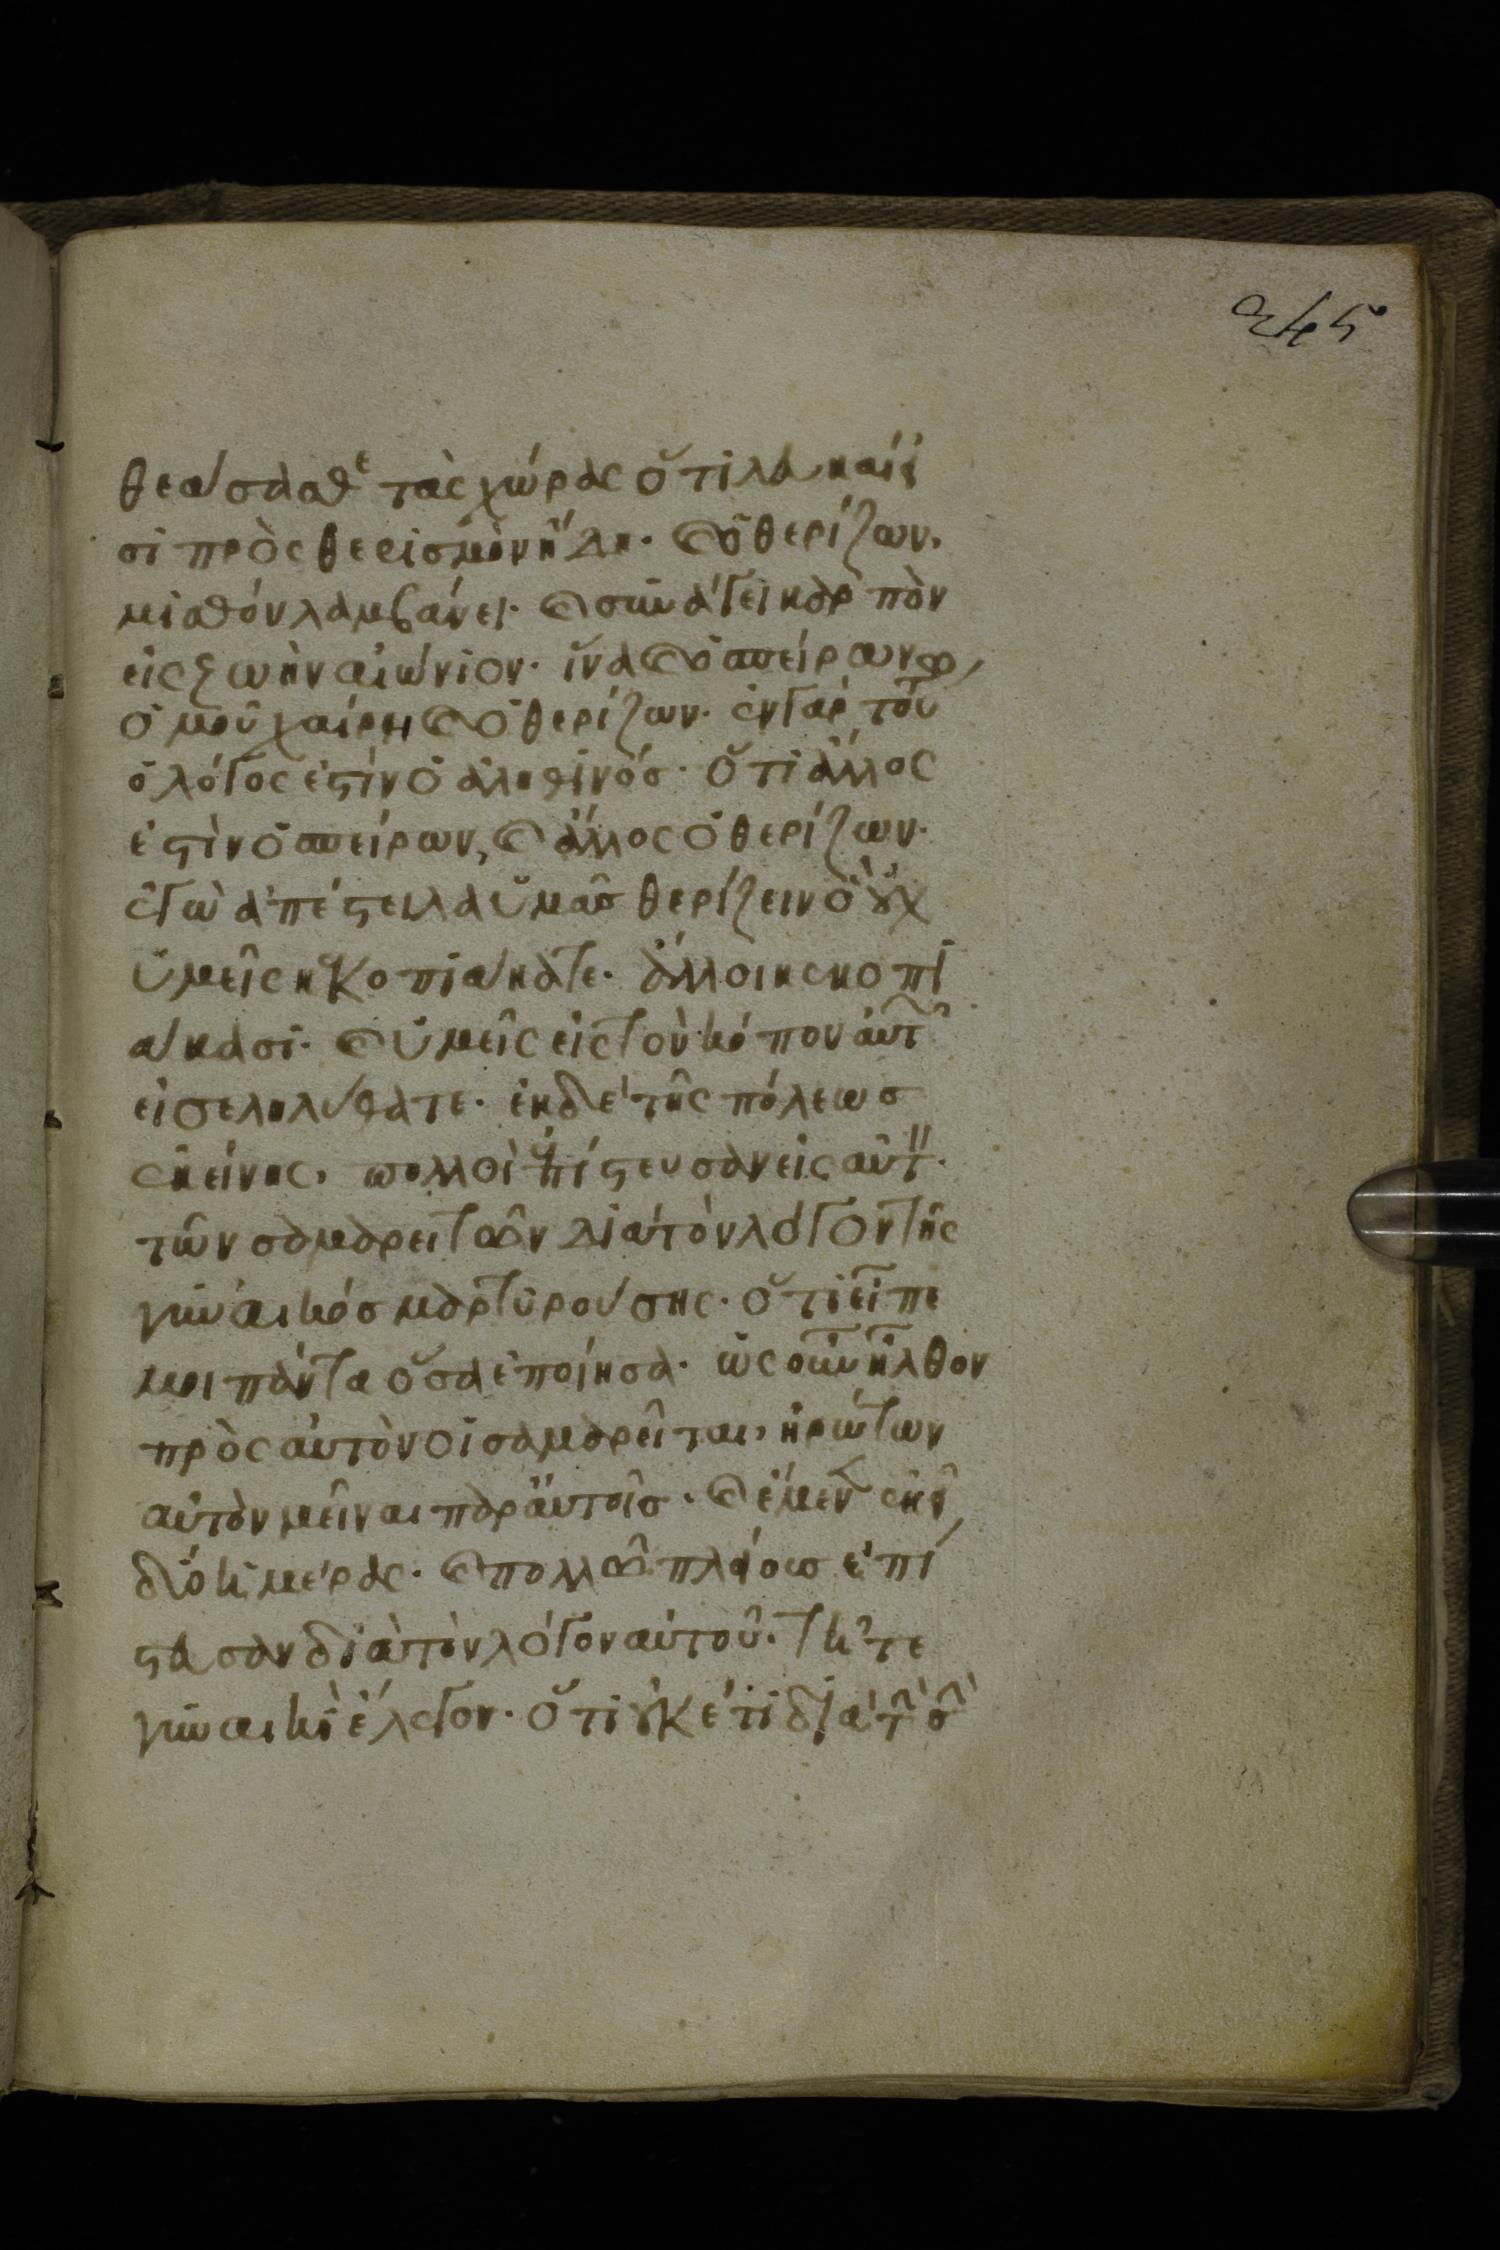 245
θεάσασθε τὰς χώρας ὅτι λευκαί εἰ
σι πρὸς θερισμὸν ἤδη· (καὶ) ὁ θερίζων,
μισθὸν λαμβάνει· (καὶ) συνάγει καρπὸν
εἰς ζωὴν αἰώνιον· ἵνα (καὶ) ὁ σπείρων
ὁμοῦ χαίρη (καὶ) ὁ θερίζων· ἐν γὰρ τού
ὁ λόγος ἐστὶν ὁ ἀληθινός· ὅτι ἄλλος
ἐστὶν ὁ σπείρων, (καὶ) ἄλλος ὁ θερίζων·
ἐγὼ ἀπέστειλα ὑμᾶς θερίζειν ὃ οὐχ
ὑμεῖς κεκοπιάκατε· ἄλλοι κεκοπι
άκασι· (καὶ) ὑμεῖς εἰς τὸν κόπον αὐτῶν
εἰσεληλύθατε· ἐκ δὲ τῆς πόλεως
ἐκείνης, πολλοὶ ἐπίστευσαν εἰς αὐτὸν·
τῶν σαμαρειτῶν διὰ τὸν λόγον τῆς
γυναικὸς μαρτυρούσης· ὅτι εἶπε
μοι πάντα ὅσα ἐποίησα· ὡς οὖν ἦλθον
πρὸς αὐτὸν οἱ σαμαρεῖται, ἠρώτων
αὐτὸν μεῖναι παρ αὐτοῖς· (καὶ) ἔμεινεν ἐκεῖ
δύο ἡμέρας· (καὶ) πολλῶ πλείους ἐπί
στευσαν διὰ τὸν λόγον αὐτοῦ· τῆ τε
γυναικὶ ἔλεγον· ὅτι οὐκέτι διὰ τὴν σὴν